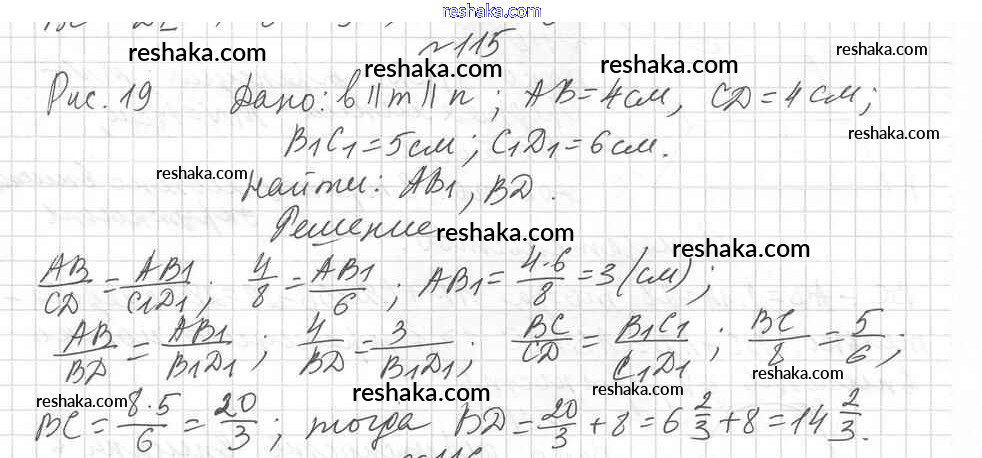 reshaka.com
№115
reshaka.com reshaka.com reshaka.com
Рис. 19 Дано: b || m || n ; AB = 4 см, CD = 4 см;
reshaka.com
B1C1 = 5 см ; C1D1 = 6 см.
reshaka.com
Найти: AB1, BD.
Решение
reshaka.com reshaka.com
AB/CD = AB1/C1D1 ; 4/8 = AB1/6 ; AB1 = 4·6/8 = 3 (см) ;
AB/BD = AB1/B1D1 ; 4/BD = 3/B1D1 ; BC/CD = B1C1/C1D1 ; BC/8 = 5/6 ;
reshaka.com reshaka.com reshaka.com reshaka.com
BC = 8·5/6 = 20/3 ; тогда BD = 20/3 + 8 = 6 2/3 + 8 = 14 2/3.